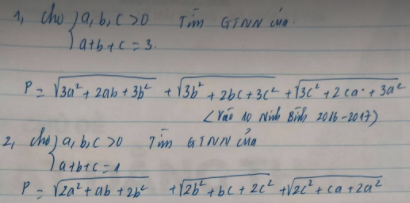 1, Cho { a, b, c > 0 Tìm GTNN của
a + b + c = 3.
P = √3a² + 2ab + 3b² + √3b² + 2bc + 3c² + √3c² + 2ca + 3a²
(Vào 10 Ninh Bình 2016-2017)
2, Cho { a, b, c > 0 Tìm GTNN của
a + b + c = 1
P = √2a² + ab + 2b² + √2b² + bc + 2c² + √2c² + ca + 2a²